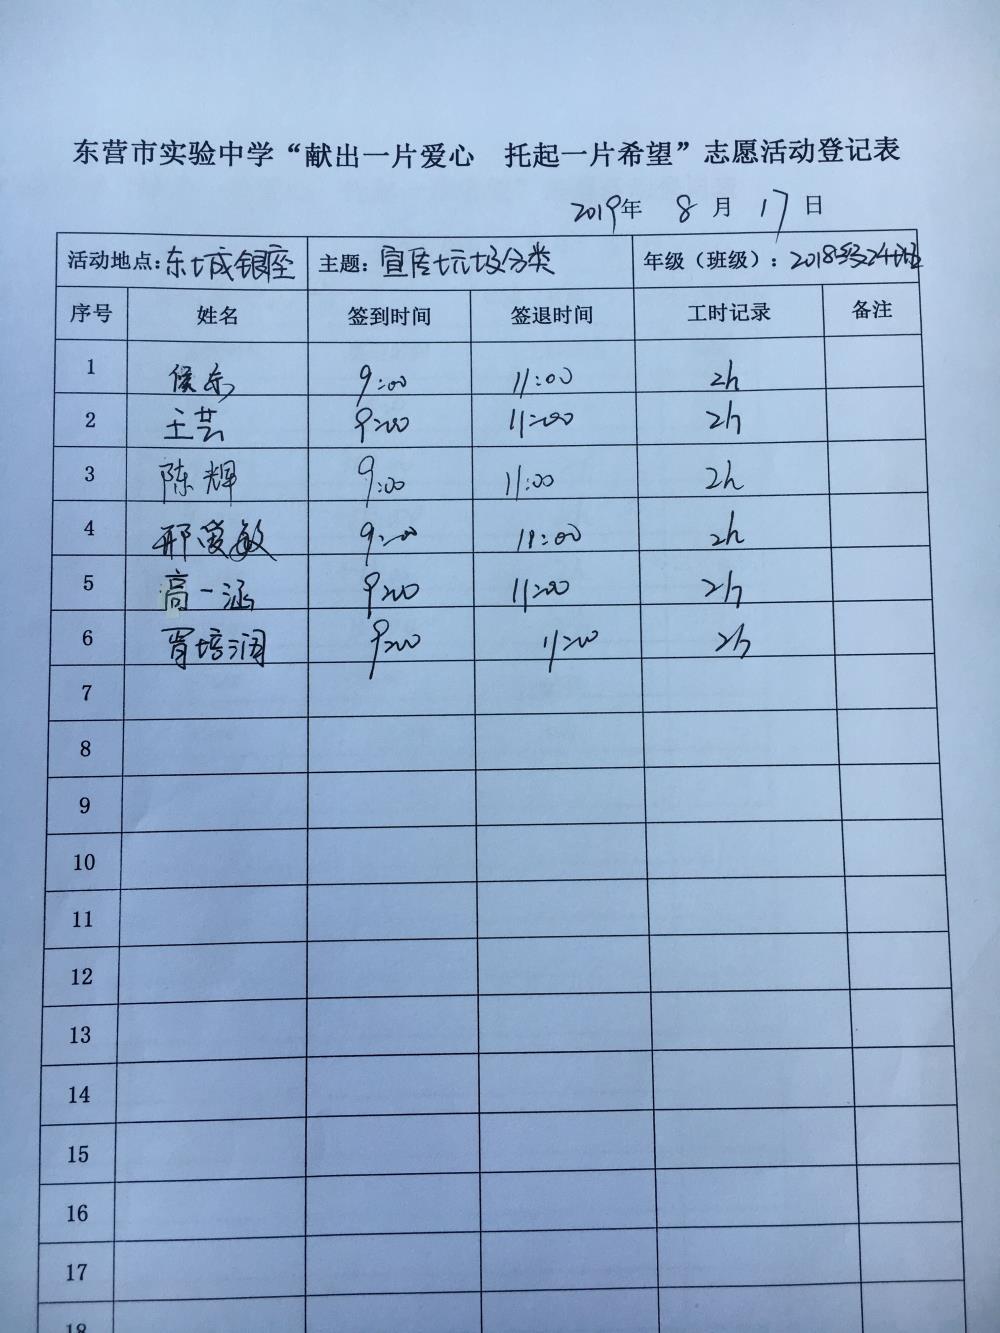 东营市实验中学“献出一片爱心 托起一片希望”志愿活动登记表
2019年 8 月 17 日
活动地点：东城银座 主题：宣传垃圾分类 年级（班级）：2018级24班
序号 姓名 签到时间 签退时间 工时记录 备注
1 侯东 9:00 11:00 2h
2 王芸 9:00 11:00 2h
3 陈辉 9:00 11:00 2h
4 邢爱敏 9:00 11:00 2h
5 高一涵 9:00 11:00 2h
6 胥培润 9:00 11:00 2h
7
8
9
10
11
12
13
14
15
16
17
18